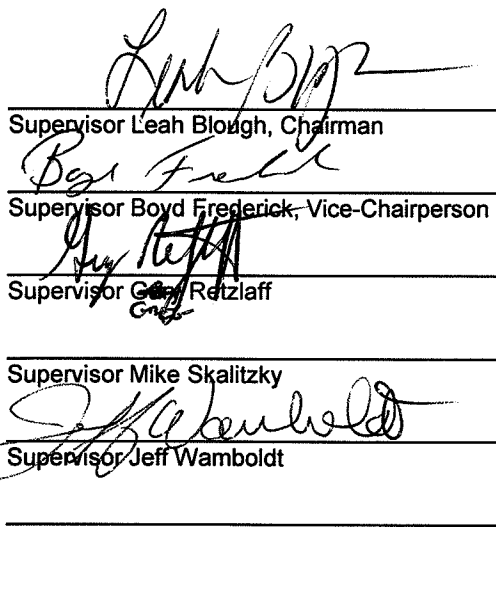 Leah Blough
Supervisor Leah Blough, Chairman
Boyd Frederick
Supervisor Boyd Frederick, Vice-Chairperson
Retzlaff
Supervisor Retzlaff
Supervisor Mike Skalitzky
Jeff Wamboldt
Supervisor Jeff Wamboldt